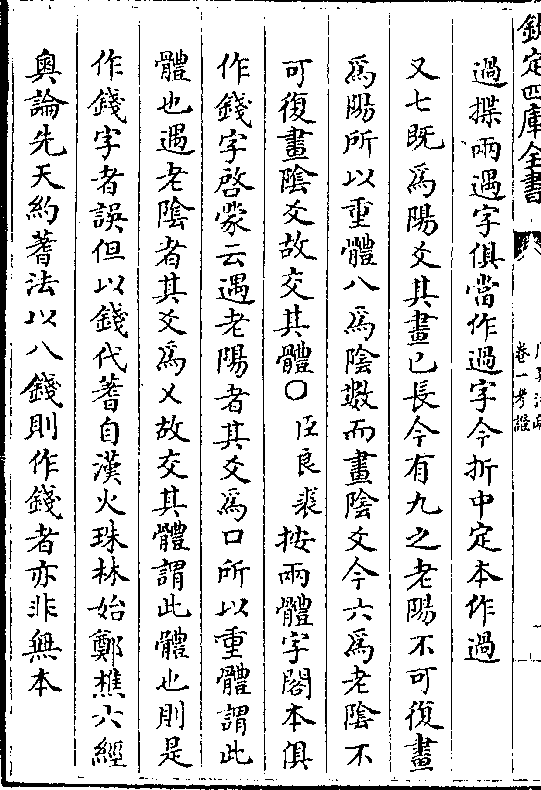 欽定四庫全書
卷一考證
過揲兩遇字俱當作過字今折中定本作過
又七既爲陽爻其畫已長今有九之老陽不可復畫
爲陽所以重體八爲陰數而畫陰爻今六爲老陰不
可復畫陰爻故交其體○臣良裘按兩體字閣本俱
作錢字啓蒙云遇老陽者其爻爲口所以重體謂此
體也遇老陰者其爻爲乂故交其體謂此體也則是
作錢字者誤但以錢代蓍自漢火珠林始鄭樵六經
奧論先天約蓍法以八錢則作錢者亦非無本